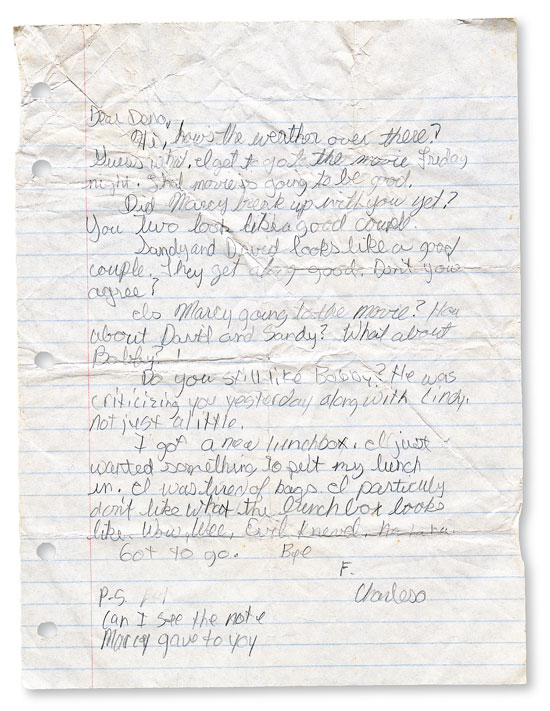 Dear Dana,
Hi, hows the werther over there?
Guess what, I got to go to the movie Friday
night. That movie is going to be good.
Did Marcy break up with you yet?
You two look like a good coupl.
Sandy and David looks like a good
couple. They get along good. Don't you
agree?
Is Marcy going to the movie? How
about David and Sandy? What about
Bobby?
Do you still like Bobby? He was
criticizing you yesterday along with Lindy.
not just a little.
I got a new lunchbox. I just
wanted something to put my lunch
in. I was tired of bags. I particuly
don't like what the lunchbox looks
like. Wow, Wee, Evil Knevel, ha ha ha.
Got to go. Bye
F.
P.S.
Can I see the note
Marcy gave to yoy